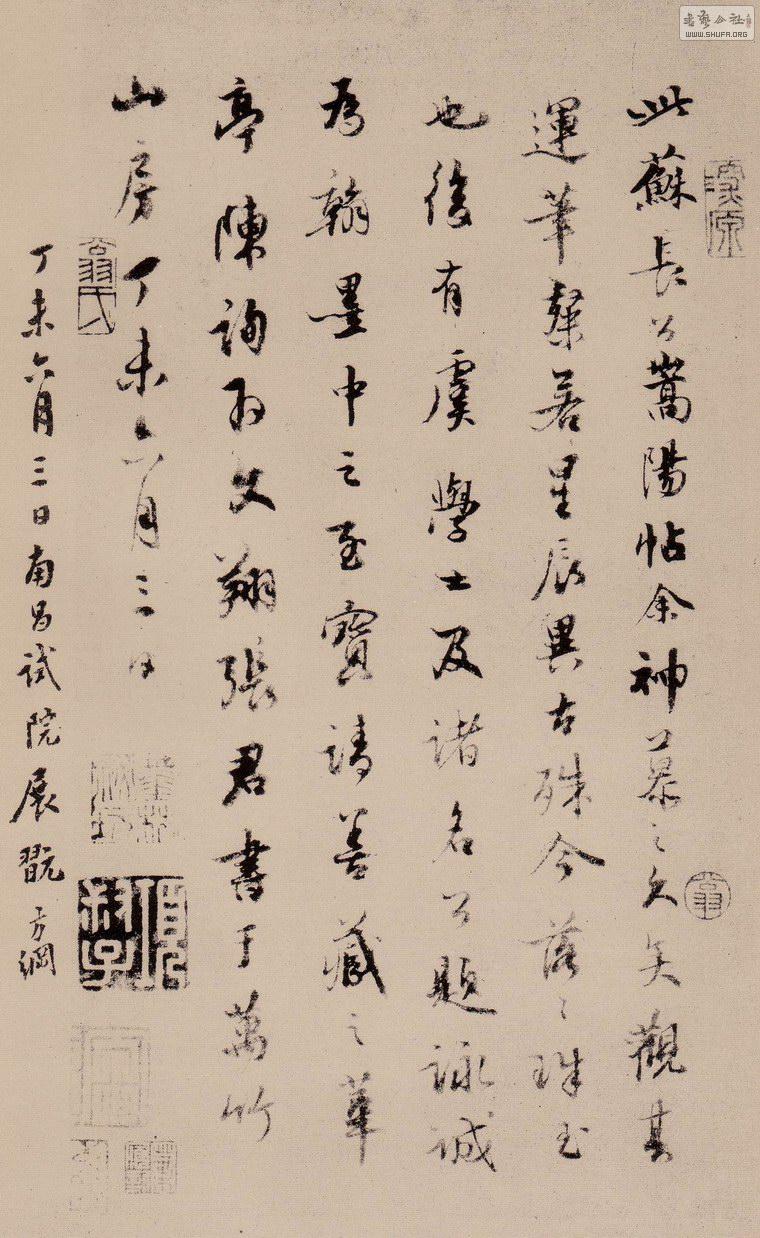 此蘇長公嵩陽帖余神慕之久矣觀其
運筆粲若星辰異古殊今落〻珠玉
也後有虞學士及諸名公題詠誠
為翰墨中之至寶請善藏之華
亭陳詢為文翔張君書于萬竹
山房丁未六月三日
翁氏
丁未六月三日南昌試院展翫方綱
WWW.SHUFA.ORG